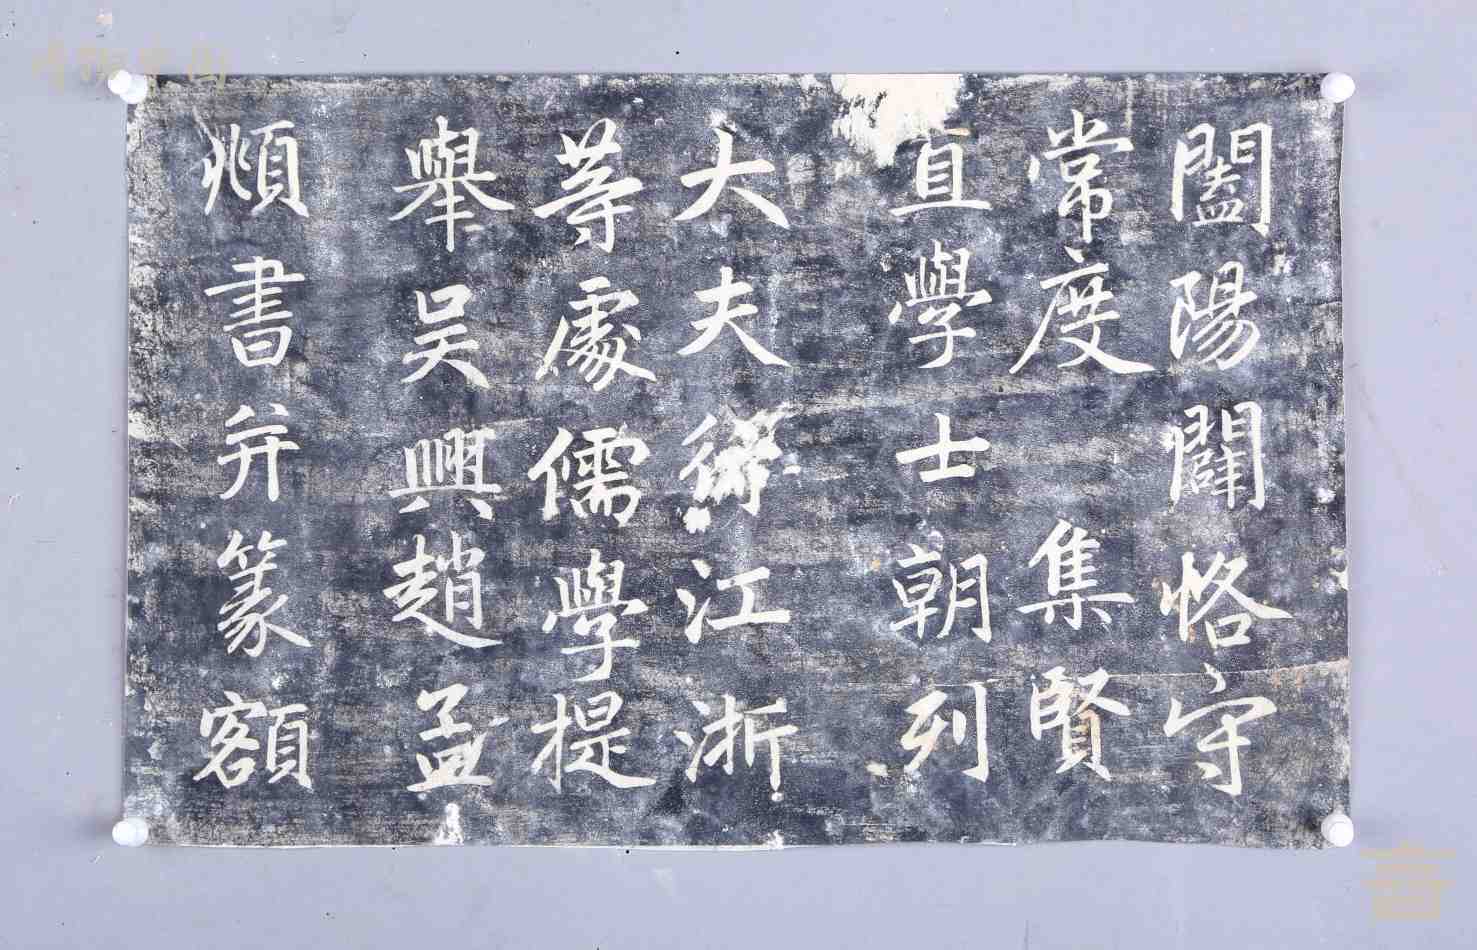 闔陽闢恪守
常度集賢
直學士朝列
大夫行江浙
等處儒學提
舉吳興趙孟
頫書并篆額